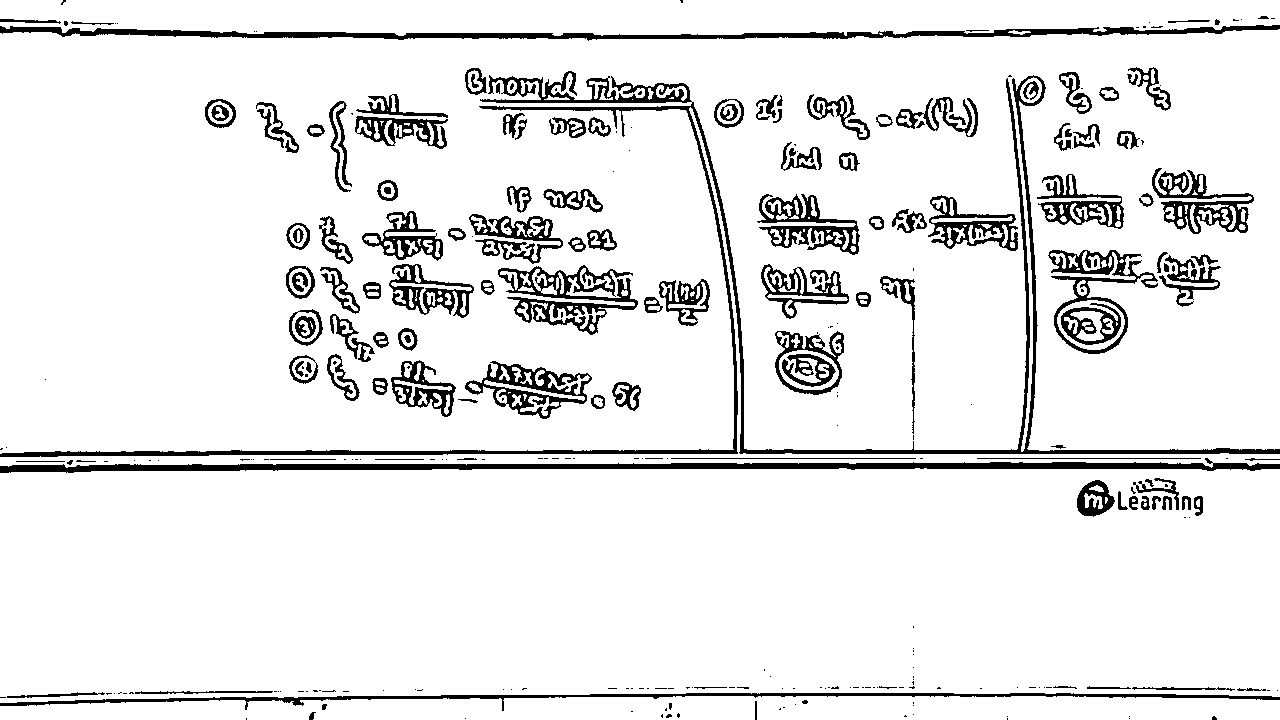 Binomial Theorem
② ⁿCᵣ = { n! / r!(n-r)! if n≥r
0 if n<r
① ⁷C₂ = 7! / 2!×5! = 7×6×5! / 2×5! = 21
② ⁿC₂ = n! / 2!(n-2)! = n×(n-1)×(n-2)! / 2×(n-2)! = n(n-1) / 2
③ ¹²C₁₇ = 0
④ ⁸C₃ = 8! / 3!×5! = 8×7×6×5! / 6×5! = 56
⑤ If ⁽ⁿ⁺¹⁾C₃ = 2×(ⁿC₂)
find n
(n+1)! / 3!×(n-2)! = 2× n! / 2!×(n-2)!
(n+1) n! / 6 = n!
n+1 = 6
n = 5
⑥ ⁿC₃ = ⁿ⁻¹C₂
find n.
n! / 3!(n-3)! = (n-1)! / 2!(n-3)!
n×(n-1)! / 6 = (n-1)! / 2
n = 3
m Learning